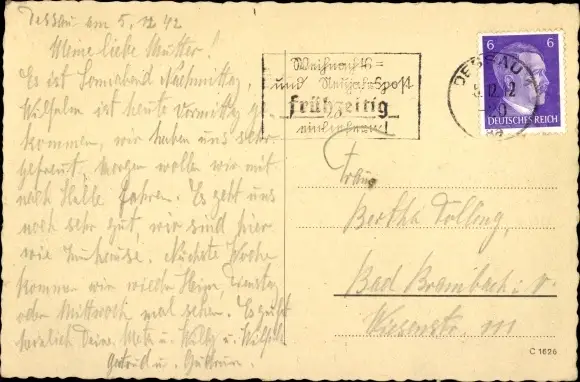 Dessau am 5.12.42
Meine liebe Mutter!
Es ist Sonnabend Nachmittag,
Wilhelm ist heute Vormittag ge-
kommen, wir haben uns sehr
gefreut, Morgen wollen wir mit
nach Halle fahren. Es geht uns
noch sehr gut, wir sind hier
wie zuhause. Nächste Woche
kommen wir wieder Heim, Dienstag
oder Mittwoch mal sehen. Es grüßt
herzlich Deine u. u.
Gertrud u.
Weihnachts=
und Neujahrspost
frühzeitig
einliefern!
DESSAU
5.12.42
6 6
DEUTSCHES REICH
Frau
Bertha
Bad Brambach i. V.
Wiesenstr. 111
C 1626